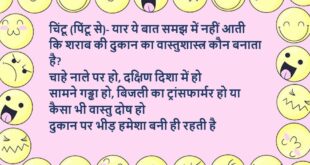 चिंटू (पिंटू से)- यार ये बात समझ में नहीं आती
कि शराब की दुकान का वास्तुशास्त्र कौन बनाता
है?
चाहे नाले पर हो, दक्षिण दिशा में हो
सामने गड्ढा हो, बिजली का ट्रांसफार्मर हो या
कैसा भी वास्तु दोष हो
दुकान पर भीड़ हमेशा बनी ही रहती है